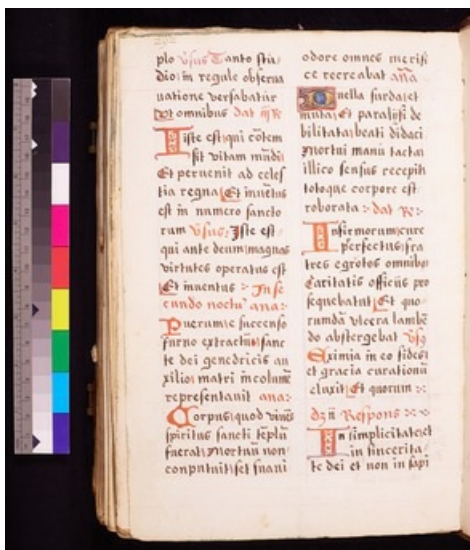 plo v̄sus Tanto stu-
dio: in regule obserua
uatione versabatur
Vt omnibus dat
Iste est: qui cōtem
sit vitam mūdi
Et peruenit ad celes
tia regna: Et inuētus
est in numero sancto
rum v̄sus: Iste est
qui ante deum: magnas
virtutes operatus est
Et inuentus : In se
cundo noctur̄ ana:
Puerum: e succenso
furno extractū: sanc
te dei genedricis au
xilio: matri incolumē
representauit ana:
Corpus: quod viuēs
spiritus sancti tēplū
fuerat: mortuū non
conputuit: set suaui
odore omnes merifi
ce recreabat ana
uella surda: et
muta: Et paralisi de
bilitata: beati didaci
mortui manū tacta:
illico sensus recepit
totoque corpore est
roborata : dat R̄:
Infirmorum: cure
perfectus: fra
tres egrotos omnibus
Caritatis officiis pro
sequebatur: Et quo-
rumdā vlcera lambē
do abstergebat v̄s
Eximia in eo fides:
et gracia curationū
eluxit: Et quorum :
Respons :
In simplicitate: et
in sincerita-
te dei et non in sapi